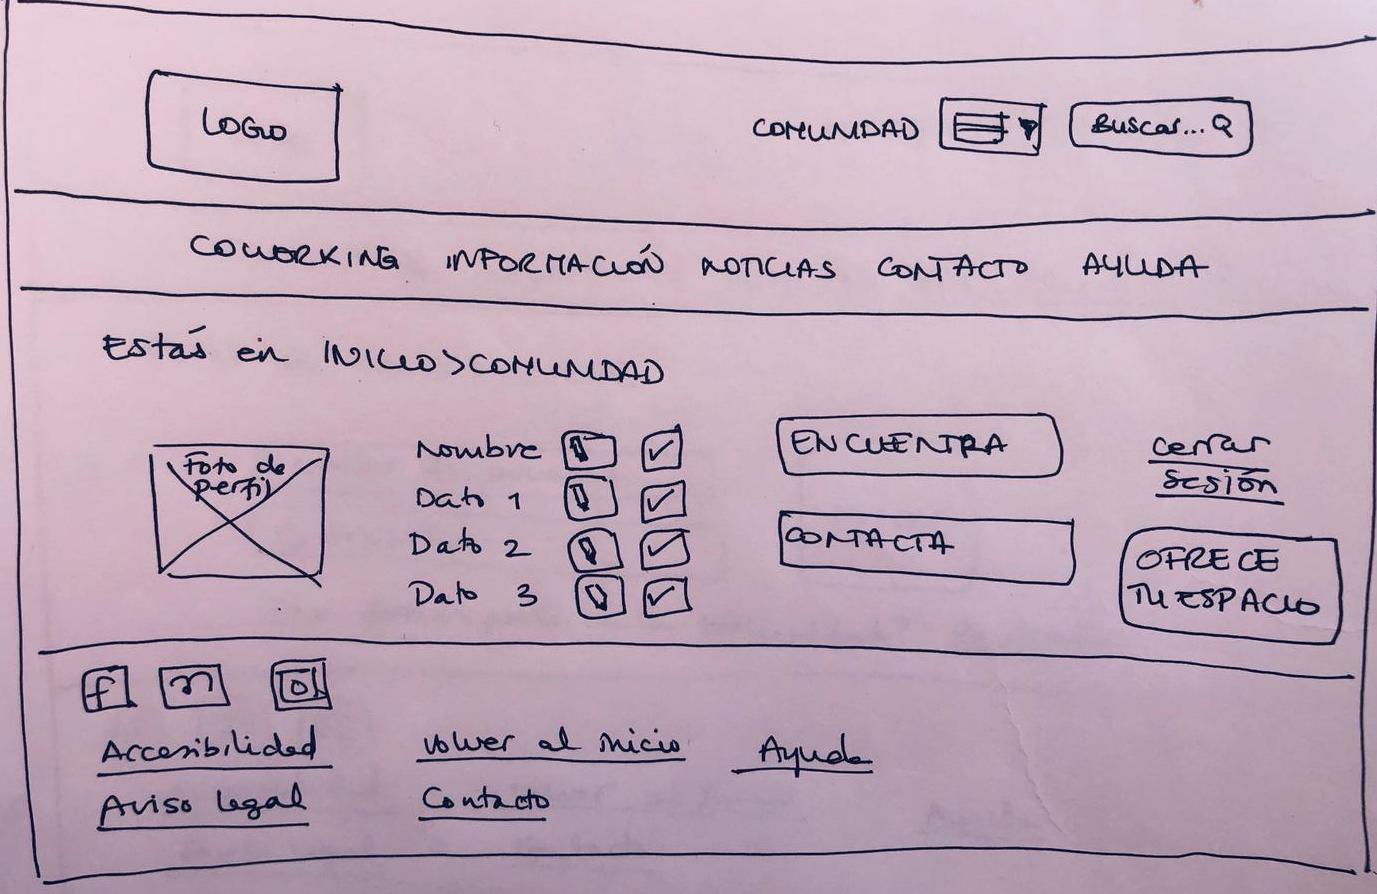 LOGO
COMUNIDAD Buscar...
COWORKING INFORMACIÓN NOTICIAS CONTACTO AYUDA
Estás en INICIO>COMUNIDAD
Foto de
perfil
Nombre
Dato 1
Dato 2
Dato 3
ENCUENTRA
CONTACTA
cerrar
sesión
OFRECE
TU ESPACIO
f
Accesibilidad Volver al inicio Ayuda
Aviso legal Contacto